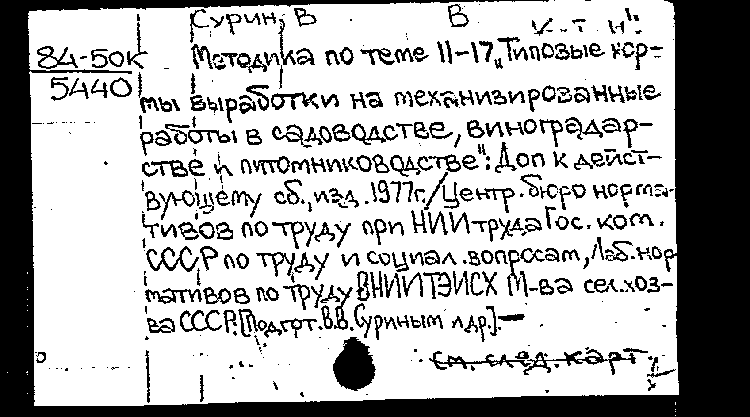 Сурин, В В
84-50к
5440
Методика по теме 11-17 "Типовые нор-
мы выработки на механизированные
работы в садоводстве, виноградар-
стве и питомниководстве": Доп. к дейст-
вующему сб., изд. 1977г. / Центр. бюро норма-
тивов по труду при НИИ труда Гос. ком.
СССР по труду и социал. вопросам, Лаб. нор
мативов по труду ВНИИТЭИСХ М-ва сел. хоз-
ва СССР; [Подгот. В.В. Суриным и др.]. —
см. след. карт.